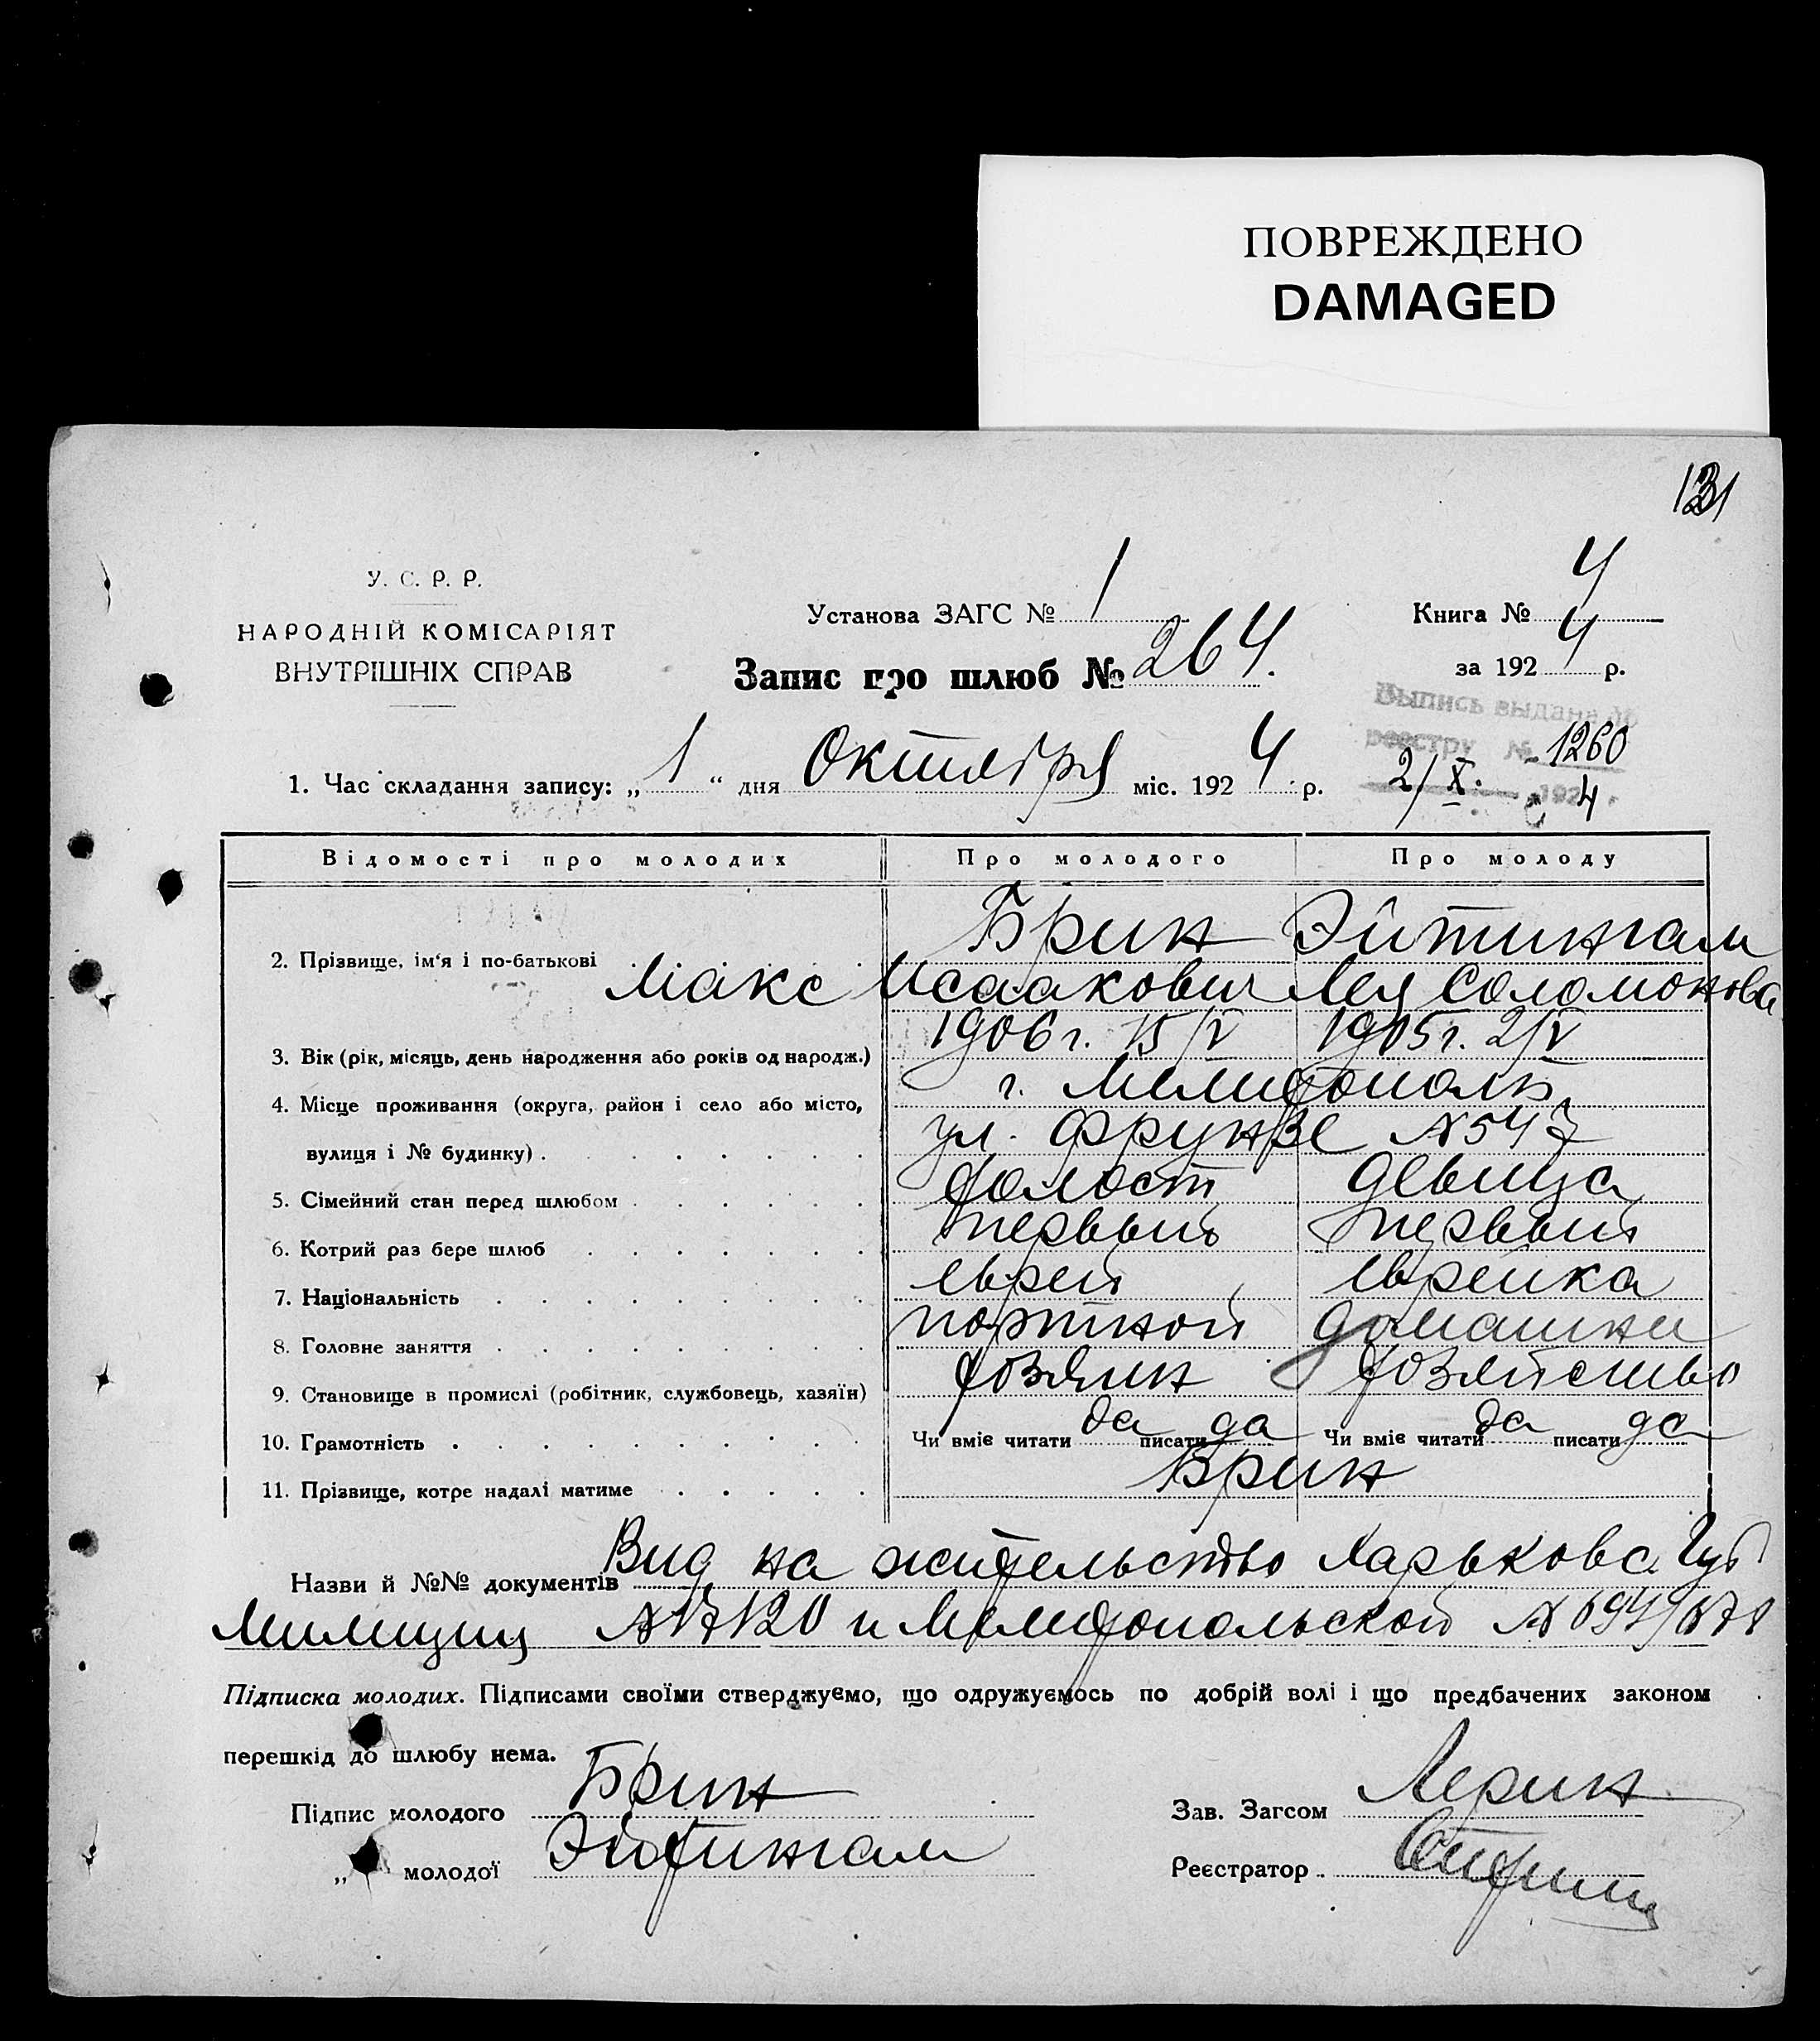 ПОВРЕЖДЕНО
DAMAGED
131
У. С. Р. Р.
НАРОДНІЙ КОМІСАРІЯТ
ВНУТРІШНІХ СПРАВ
Установа ЗАГС № 1
Книга № 4
за 1924 р.
Запис про шлюб № 264.
Выпись выдана по
реестру № 1260
2/X 1924 г.
1. Час складання запису: „1“ дня Октября міс. 1924 р.
Відомості про молодих Про молодого Про молоду
2. Прізвище, ім'я і по-батькові Брин Эйтингам
Макс Исаакович Лея Соломонова
3. Вік (рік, місяць, день народження або років од народж.) 1906 г. 15/V 1905 г. 2/V
4. Місце проживання (округа, район і село або місто, г. Мелитополь
вулиця і № будинку) ул. Фрунзе № 547
5. Сімейний стан перед шлюбом холост девица
6. Котрий раз бере шлюб первый первый
7. Національність еврей еврейка
8. Головне заняття портной домашнее
9. Становище в промислі (робітник, службовець, хазяїн) хозяин хозяйство
10. Грамотність Чи вміє читати да писати да Чи вміє читати да писати да
11. Прізвище, котре надалі матиме Брин
Назви й №№ документів Вид на жительство Харьковс. Губ
Милиции № 17120 и Мелитопольской №
Підписка молодих. Підписами своїми стверджуємо, що одружуємось по добрій волі і що предбачених законом
перешкід до шлюбу нема.
Підпис молодого Брин
Зав. Загсом Лерин
„ молодої Эйтингам
Реєстратор